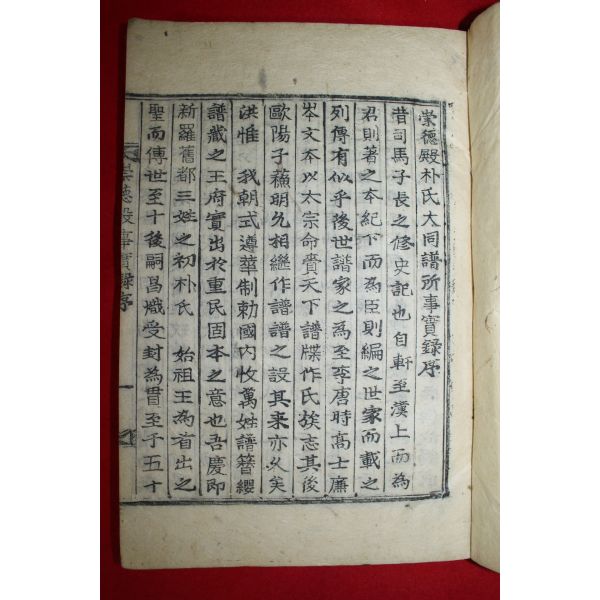 崇德殿朴氏大同譜所事實錄序
昔司馬子長之修史記也自軒至漢上而為
君則著之本紀下而為臣則編之世家而載之
列傳有似乎後世譜家之為至李唐時高士廉
岑文本以太宗命責天下譜牒作氏族志其後
歐陽子蘓明允相繼作譜譜之設其来亦久矣
洪惟 我朝式遵華制勅國內收萬姓譜簪纓
譜藏之王府實出於重民固本之意也吾慶即
新羅舊都三姓之初朴氏 始祖王為首出之
聖而傳世至十後嗣昌熾受封為貫至于五十
崇德殿事實錄序 一